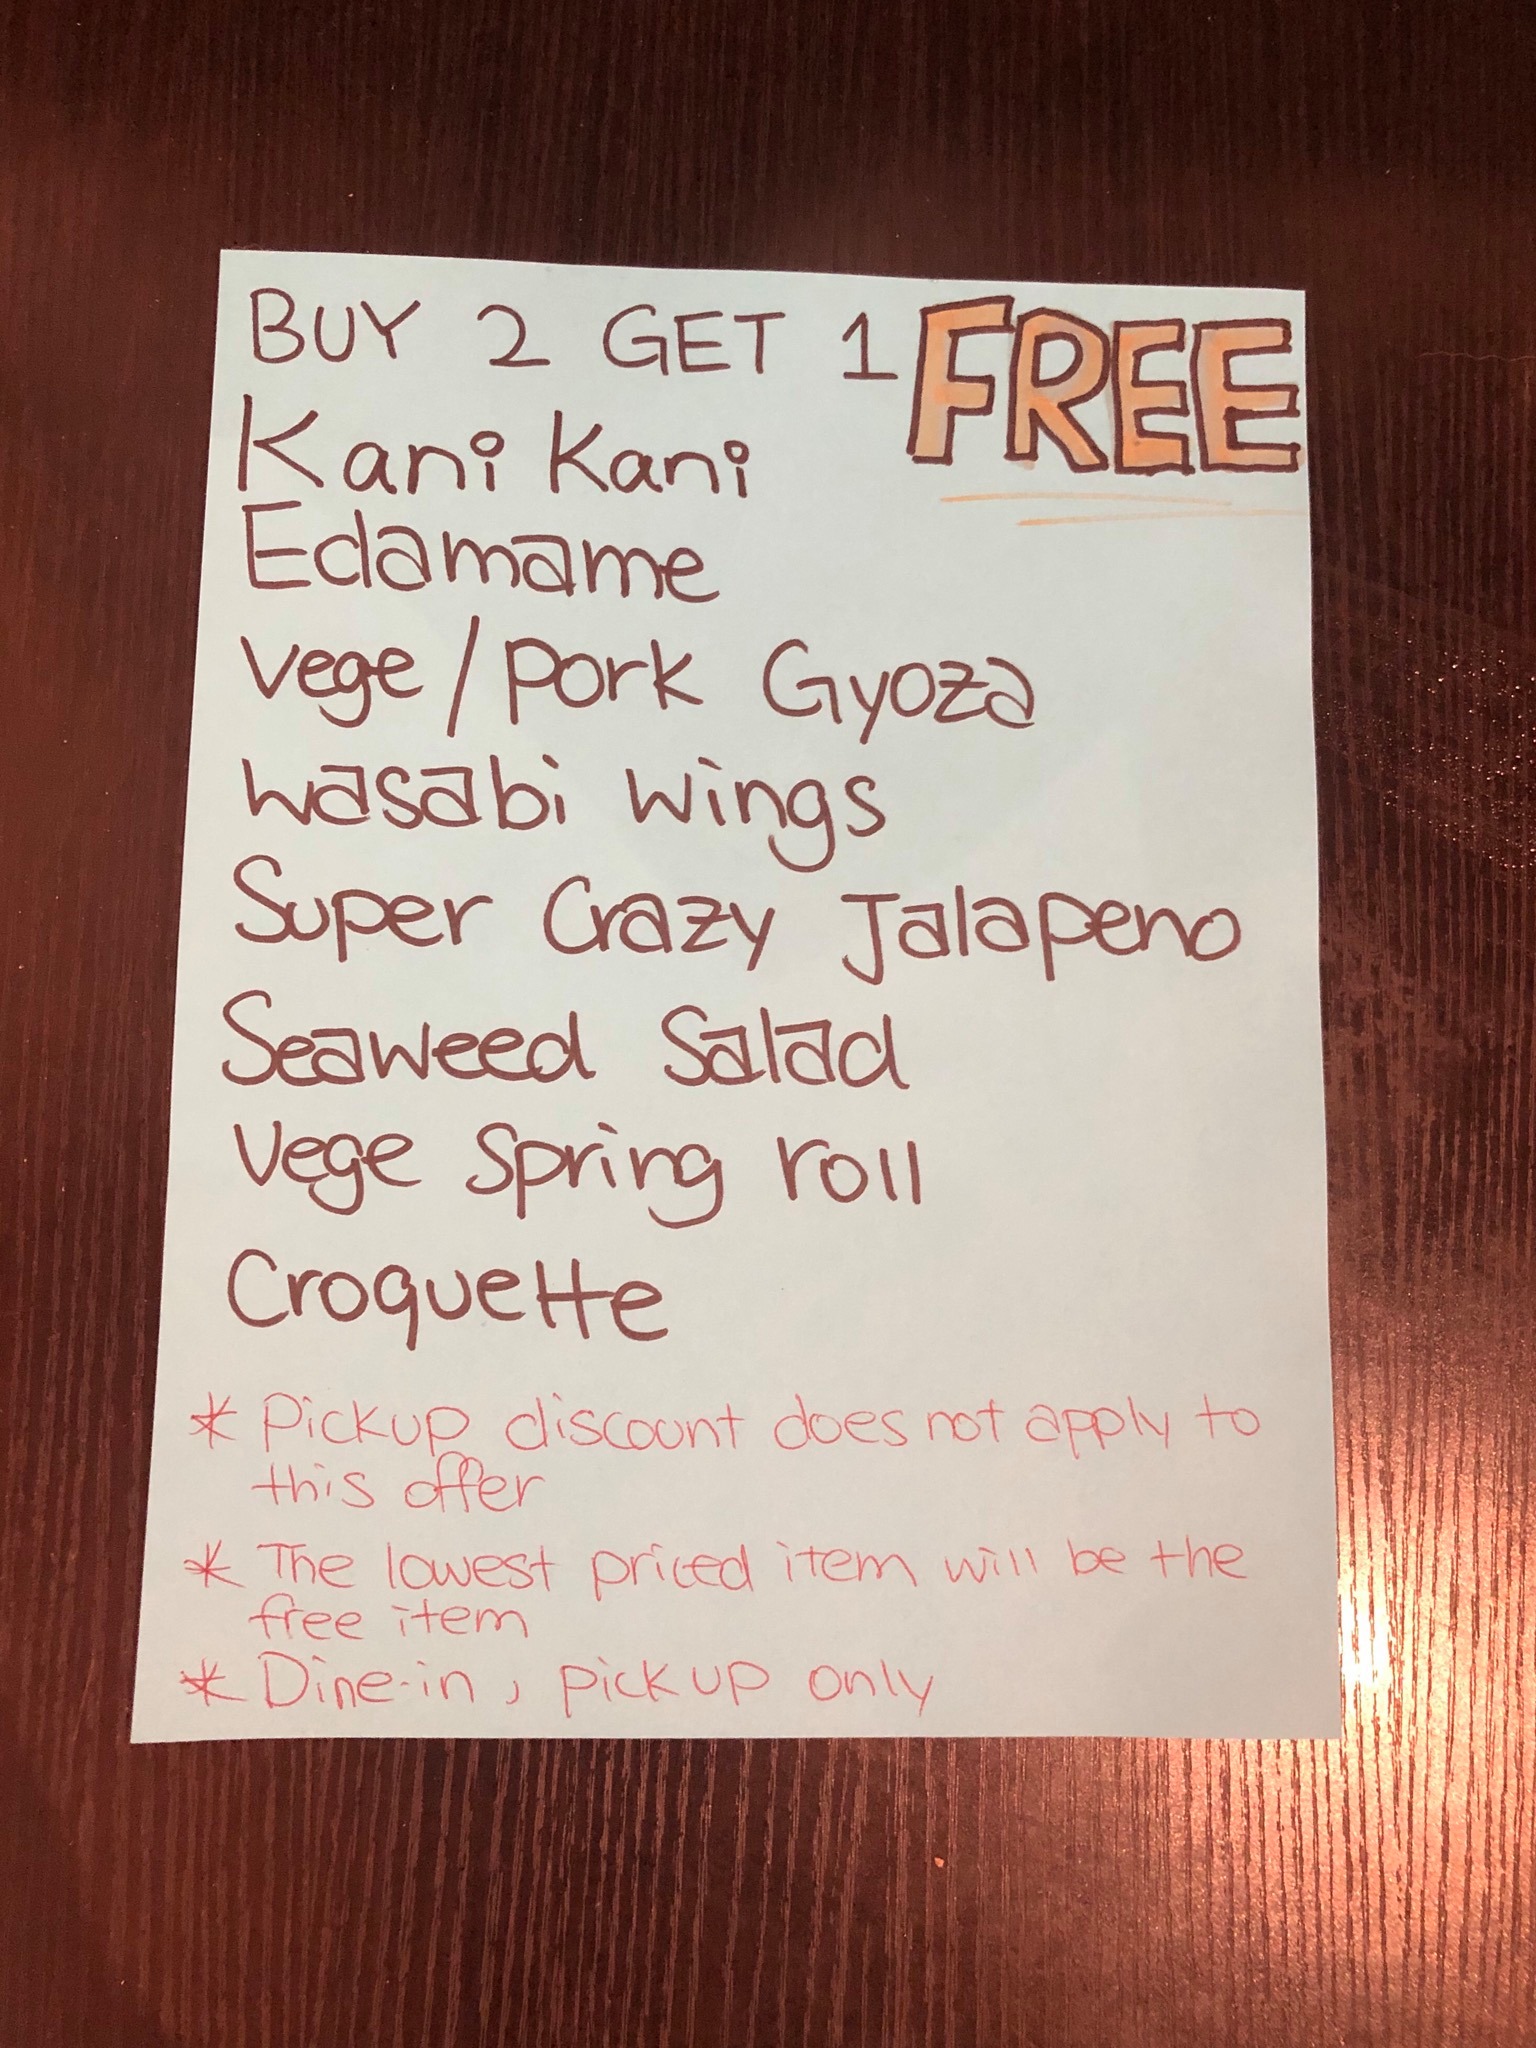 BUY 2 GET 1 FREE
Kani Kani
Edamame
Vege/Pork Gyoza
Wasabi Wings
Super Crazy Jalapeno
Seaweed Salad
Vege Spring roll
Croquette
* Pickup discount does not apply to
this offer
* The lowest priced item will be the
free item
* Dine-in, pick up only